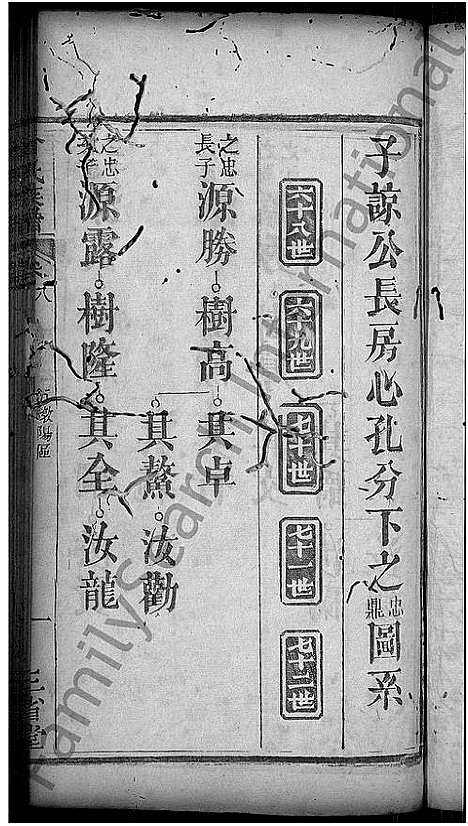 子諒公長房心孔分下之忠鼎圖系
六十八世 六十九世 七十世 七十一世 七十二世
之忠長子 源勝 樹高 其卓
其鰲 汝勸
之忠 源露 樹隆 其全 汝龍
三省堂
FamilySearch International